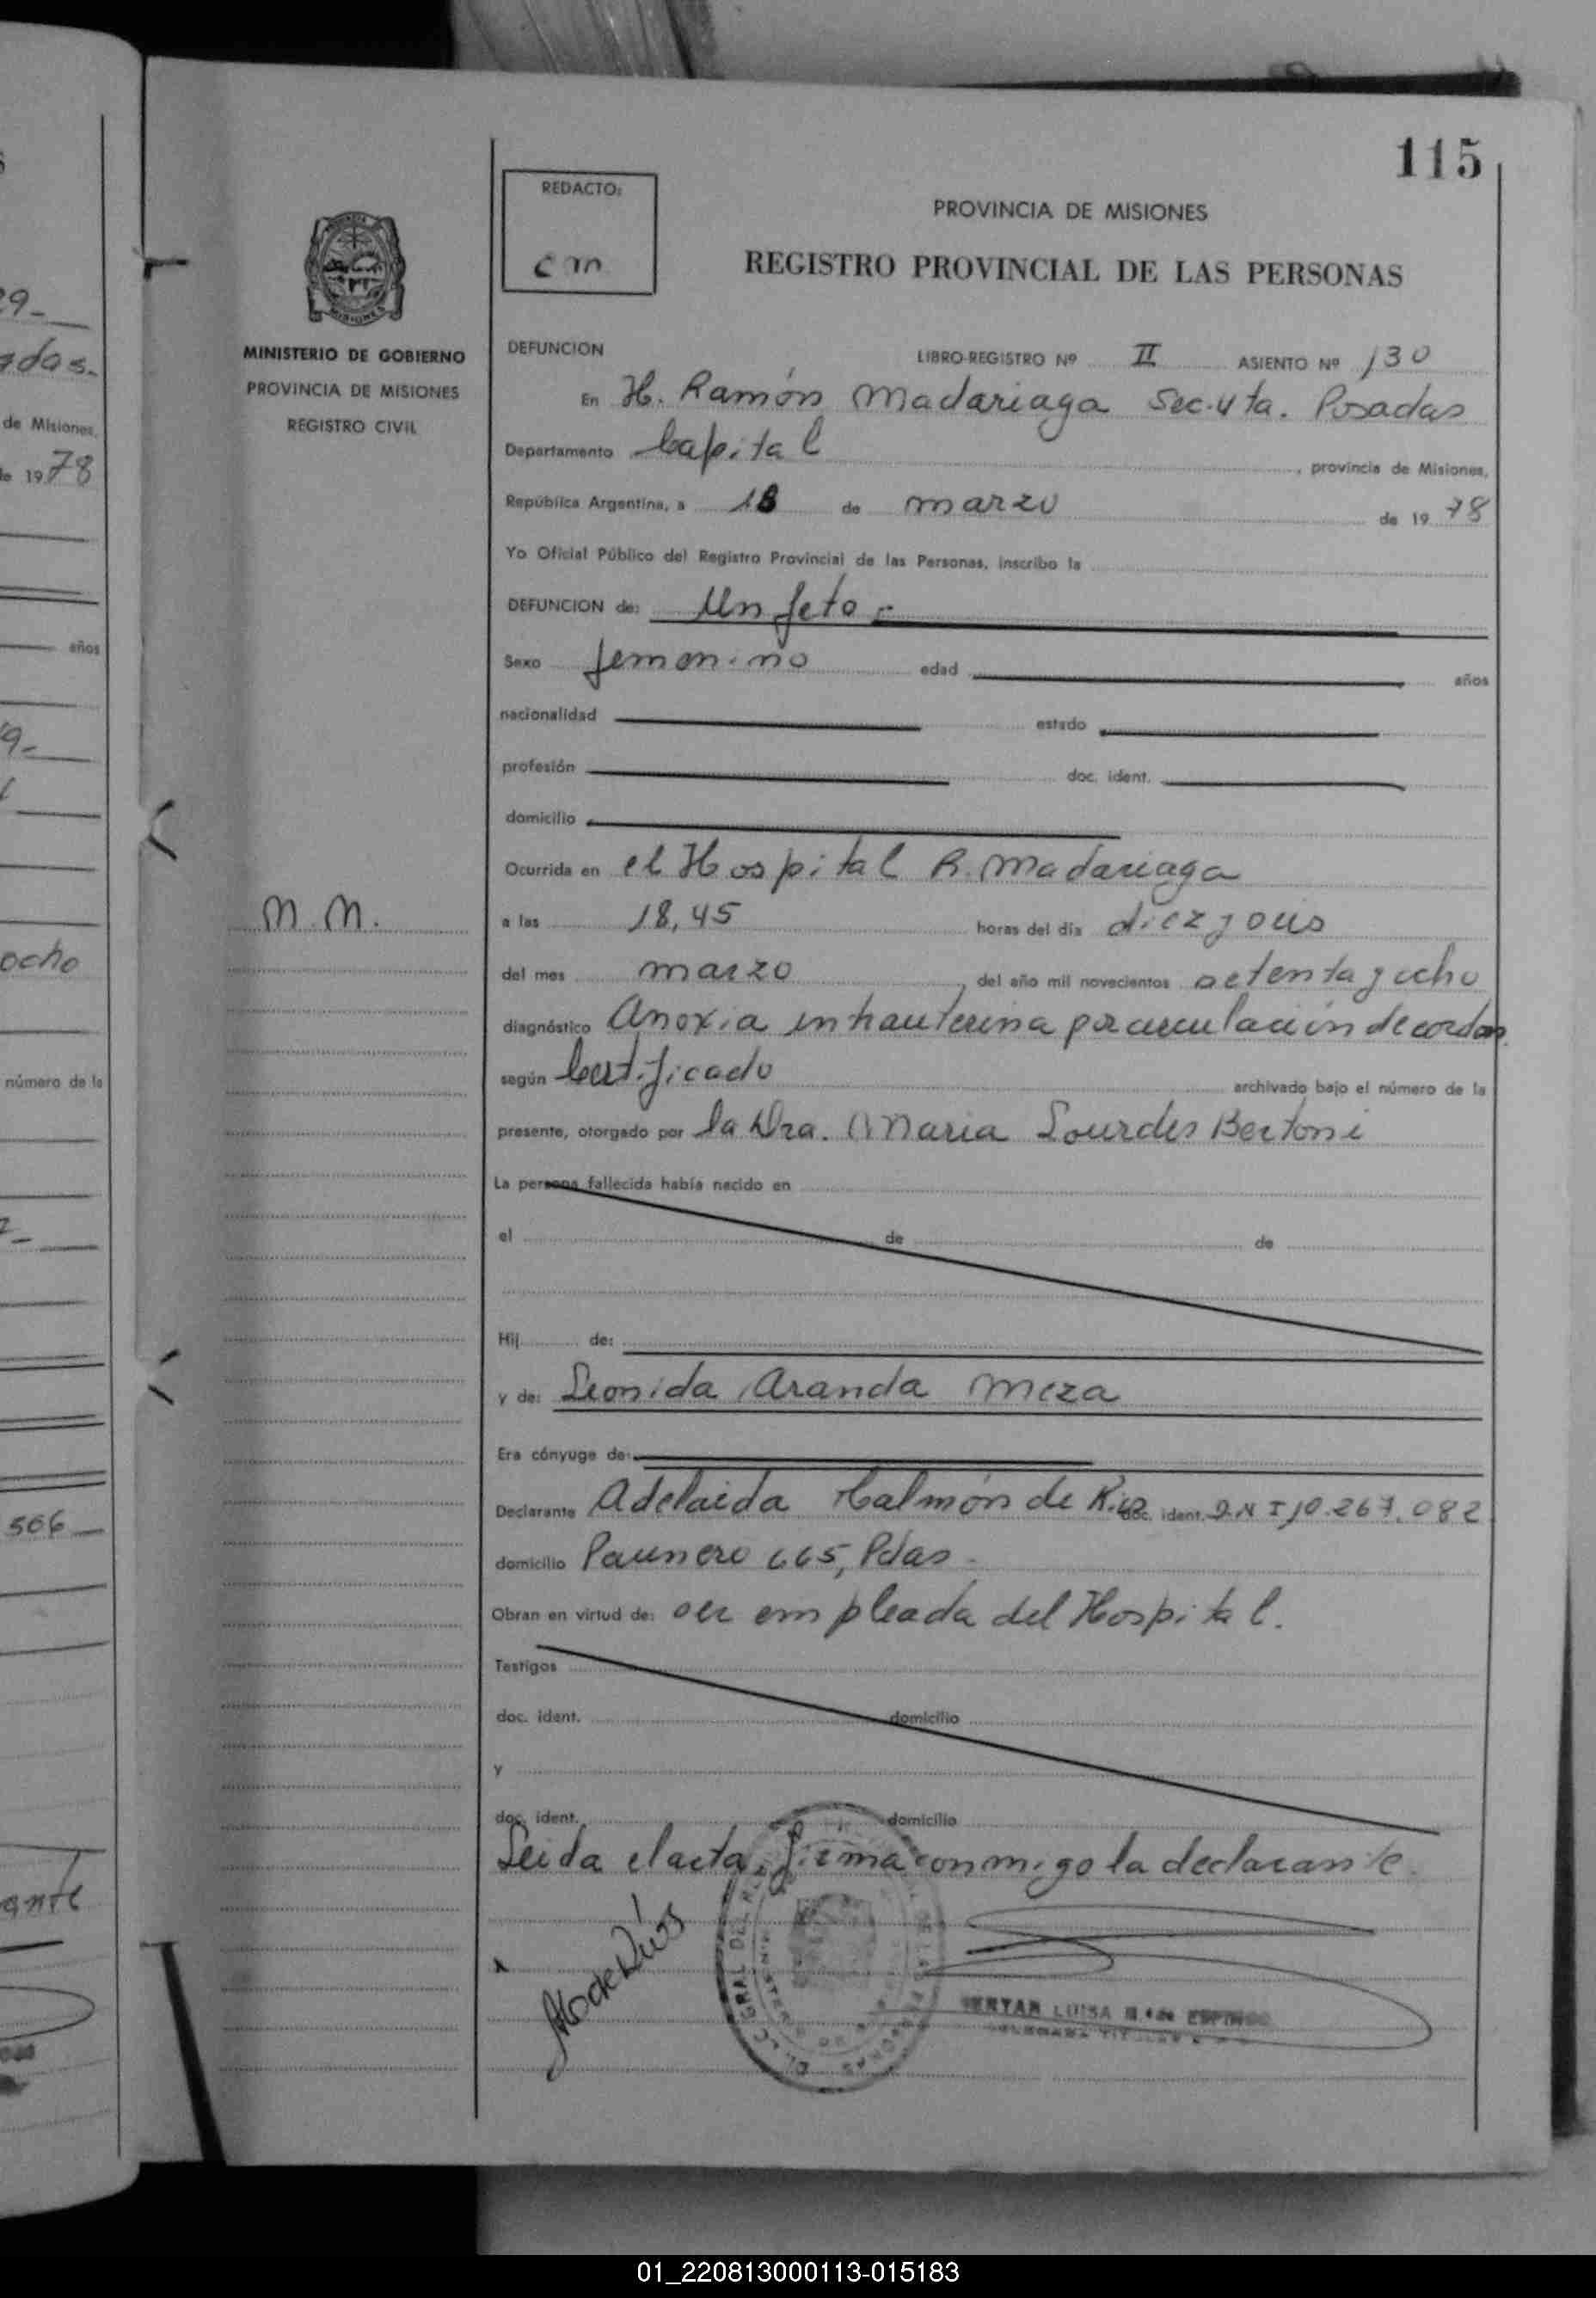 115
REDACTO:
PROVINCIA DE MISIONES
REGISTRO PROVINCIAL DE LAS PERSONAS
MISIONES
MINISTERIO DE GOBIERNO
PROVINCIA DE MISIONES
REGISTRO CIVIL
DEFUNCION LIBRO-REGISTRO Nº II ASIENTO Nº 130
En H. Ramón Madariaga Sec. 4ta. Posadas
Departamento Capital , provincia de Misiones,
República Argentina, a 18 de marzo de 19 78
Yo Oficial Público del Registro Provincial de las Personas, inscribo la
DEFUNCION de: Un feto -
Sexo femenino edad años
nacionalidad estado
profesión doc. ident.
domicilio
Ocurrida en el Hospital R. Madariaga
N.N.
a las 18,45 horas del día
del mes marzo , del año mil novecientos setenta y ocho
diagnóstico Anoxia intrauterina por circulación de cordon
según Certificado archivado bajo el número de la
presente, otorgado por la Dra. Maria Lourdes Bertoni
La persona fallecida había nacido en
el de de
Hij de:
y de: Leonida Aranda Meza
Era cónyuge de:
Declarante Adelaida de doc. ident. D.N I 10.267.082
domicilio Paunero 665, Pdas -
Obran en virtud de: ser empleada del Hospital.
Testigos
doc. ident. domicilio
y
doc. ident. domicilio
Leida el acta, firma conmigo la declarante.
LUISA
29-
adas.
de Misiones,
de 19 78
años
9-
ocho
número de la
566
ante
01_220813000113-015183